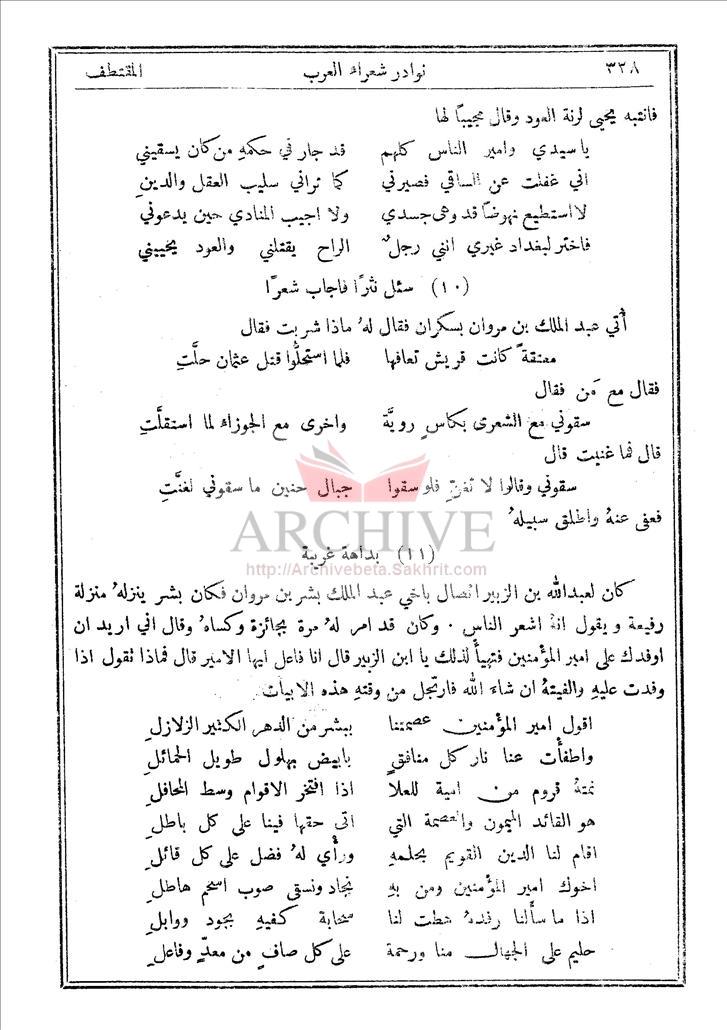 ٣٢٨ نوادر شعراء العرب المقتطف
فانتبه يحيى لرنة العود وقال مجيبًا لها
يا سيدي وامير الناس كلهم قد جار في حكمهِ من كان يسقيني
اني غفلت عن الساقي فصيرني كما تراني سليب العقل والدينِ
لا استطيع نهوضًا قد وهى جسدي ولا اجيب المنادي حين يدعوني
فاختر لبغداد غيري انني رجلٌ الراح يقتلني والعود يحييني
(١٠) سئل نثرًا فاجاب شعرًا
أُتي عبد الملك بن مروان بسكران فقال لهُ ماذا شربت فقال
معتقةً كانت قريش تعافها فلما استحلُّوا قتل عثمان حلَّتِ
فقال مع مَن فقال
سقوني مع الشعرى بكاسٍ رويَّة واخرى مع الجوزاء لما استقلَّتِ
قال فما غنيت قال
سقوني وقالوا لا تغنِّ فلو سقوا جبال حنين ما سقوني لغنَّتِ
فعفى عنهُ واطلق سبيلهُ
ARCHIVE
http://Archivebeta.Sakhrit.com
(١١) بداهة غريبة
كان لعبدالله بن الزبير اتصال باخي عبد الملك بشر بن مروان فكان بشر ينزلهُ منزلة
رفيعة ويقول انهُ اشعر الناس . وكان قد امر لهُ مرة بجائزة وكساهُ وقال اني اريد ان
اوفدك على امير المؤمنين فتهيأْ لذلك يا ابن الزبير قال انا فاعل ايها الامير قال فماذا تقول اذا
وفدت عليهِ والفيتهُ ان شاء الله فارتجل من وقتهِ هذه الابيات
اقول امير المؤمنين عصمتنا ببشر من الدهر الكثير الزلازلِ
واطفأت عنا نار كل منافقٍ بابيض بهلول طويل الحمائلِ
نمتهُ قروم من امية للعلا اذا افتخر الاقوام وسط المحافلِ
هو القائد الميمون والعصمة التي اتى حقها فينا على كل باطلِ
اقام لنا الدين القويم بحلمهِ ورأي لهُ فضل على كل قائلِ
اخوك امير المؤمنين ومن بهِ نجاد ونسقى صوب اسحم هاطلِ
اذا ما سألنا رفدهُ هطت لنا سحابة كفيهِ بجود ووابلِ
حليم على الجهال منا ورحمة على كل صافٍ من معدٍّ وفاعلِ